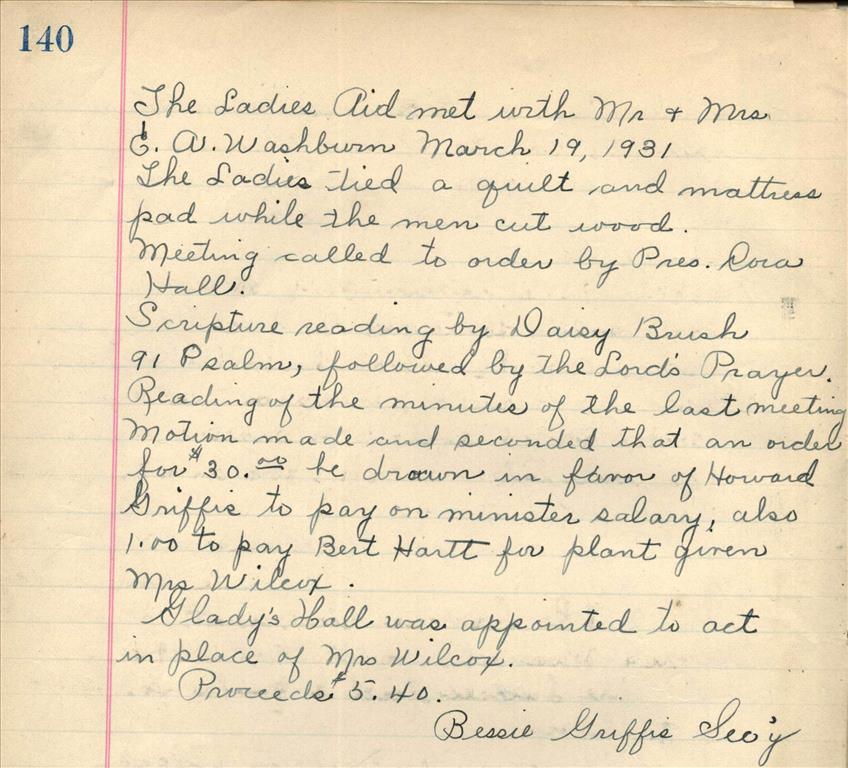 140
The Ladies Aid met with Mr & Mrs
E. A. Washburn March 19, 1931
The Ladies tied a quilt and mattress
pad while the men cut wood.
Meeting called to order by Pres. Cora
Hall.
Scripture reading by Daisy Brush
91 Psalm, followed by the Lord's Prayer.
Reading of the minutes of the last meeting
Motion made and seconded that an order
for $30.00 be drawn in favor of Howard
Griffis to pay on minister salary, also
1.00 to pay Bert Hartt for plant given
Mrs Wilcox.
Glady's Hall was appointed to act
in place of Mrs Wilcox.
Proceeds $5.40.
Bessie Griffis Sec'y